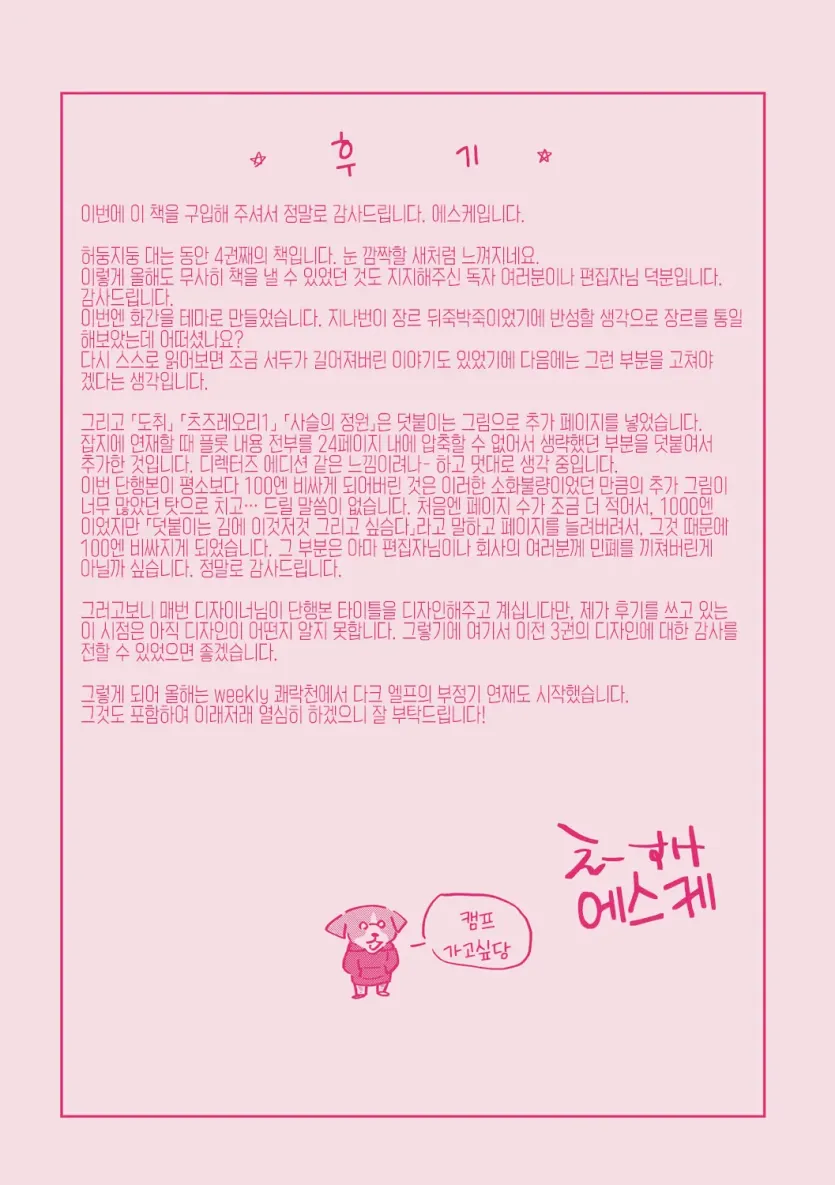 ☆ 후 기 ☆
이번에 이 책을 구입해 주셔서 정말로 감사드립니다. 에스케입니다.
허둥지둥 대는 동안 4권째의 책입니다. 눈 깜짝할 새처럼 느껴지네요.
이렇게 올해도 무사히 책을 낼 수 있었던 것도 지지해주신 독자 여러분이나 편집자님 덕분입니다.
감사드립니다.
이번엔 화간을 테마로 만들었습니다. 지나번이 장르 뒤죽박죽이었기에 반성할 생각으로 장르를 통일
해보았는데 어떠셨나요?
다시 스스로 읽어보면 조금 서두가 길어져버린 이야기도 있었기에 다음에는 그런 부분을 고쳐야
겠다는 생각입니다.
그리고 「도취」 「츠즈레오리1」 「사슬의 정원」은 덧붙이는 그림으로 추가 페이지를 넣었습니다.
잡지에 연재할 때 플롯 내용 전부를 24페이지 내에 압축할 수 없어서 생략했던 부분을 덧붙여서
추가한 것입니다. 디렉터즈 에디션 같은 느낌이려나~ 하고 멋대로 생각 중입니다.
이번 단행본이 평소보다 100엔 비싸게 되어버린 것은 이러한 소화불량이었던 만큼의 추가 그림이
너무 많았던 탓으로 치고… 드릴 말씀이 없습니다. 처음엔 페이지 수가 조금 더 적어서, 1000엔
이었지만 「덧붙이는 김에 이것저것 그리고 싶슴다」라고 말하고 페이지를 늘려버려서, 그것 때문에
100엔 비싸지게 되었습니다. 그 부분은 아마 편집자님이나 회사의 여러분께 민폐를 끼쳐버린게
아닐까 싶습니다. 정말로 감사드립니다.
그러고보니 매번 디자이너님이 단행본 타이틀을 디자인해주고 계십니다만, 제가 후기를 쓰고 있는
이 시점은 아직 디자인이 어떤지 알지 못합니다. 그렇기에 여기서 이전 3권의 디자인에 대한 감사를
전할 수 있었으면 좋겠습니다.
그렇게 되어 올해는 weekly 쾌락천에서 다크 엘프의 부정기 연재도 시작했습니다.
그것도 포함하여 이래저래 열심히 하겠으니 잘 부탁드립니다!
에스케
캠프
가고싶당